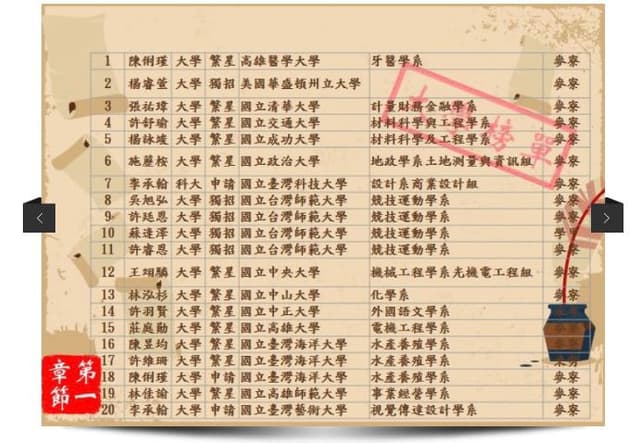 1 陳俐瑾 大學 繁星 高雄醫學大學 牙醫學系 參寮
2 楊睿萱 大學 獨招 美國華盛頓州立大學 參寮
3 張祐瑋 大學 繁星 國立清華大學 計量財務金融學系 參寮
4 許舒瑜 大學 繁星 國立交通大學 材料科學與工程學系 參寮
5 楊詠 大學 繁星 國立成功大學 材料科學及工程學系 參寮
6 施麗桉 大學 繁星 國立政治大學 地政學系土地測量與資訊組 參寮
7 李承翰 科大 申請 國立臺灣科技大學 設計系商業設計組 參寮
8 吳旭弘 大學 獨招 國立台灣師範大學 競技運動學系 參寮
9 許廷恩 大學 獨招 國立台灣師範大學 競技運動學系 參寮
10 蘇達澤 大學 獨招 國立台灣師範大學 競技運動學系
11 許睿恩 大學 獨招 國立台灣師範大學 競技運動學系 參寮
12 王翊驎 大學 繁星 國立中央大學 機械工程學系光機電工程組 參寮
13 林泓杉 大學 繁星 國立中山大學 化學系 參寮
14 許羽賢 大學 繁星 國立中正大學 外國語文學系
15 莊庭勛 大學 繁星 國立高雄大學 電機工程學系
16 陳昱均 大學 繁星 國立臺灣海洋大學 水產養殖學系
17 許維珊 大學 繁星 國立臺灣海洋大學 水產養殖學系
18 陳俐瑾 大學 申請 國立臺灣海洋大學 水產養殖學系 參寮
19 林佳諭 大學 繁星 國立高雄師範大學 事業經營學系 參寮
20 李承翰 大學 申請 國立臺灣藝術大學 視覺傳達設計學系 參寮
大學榜單
第一章節